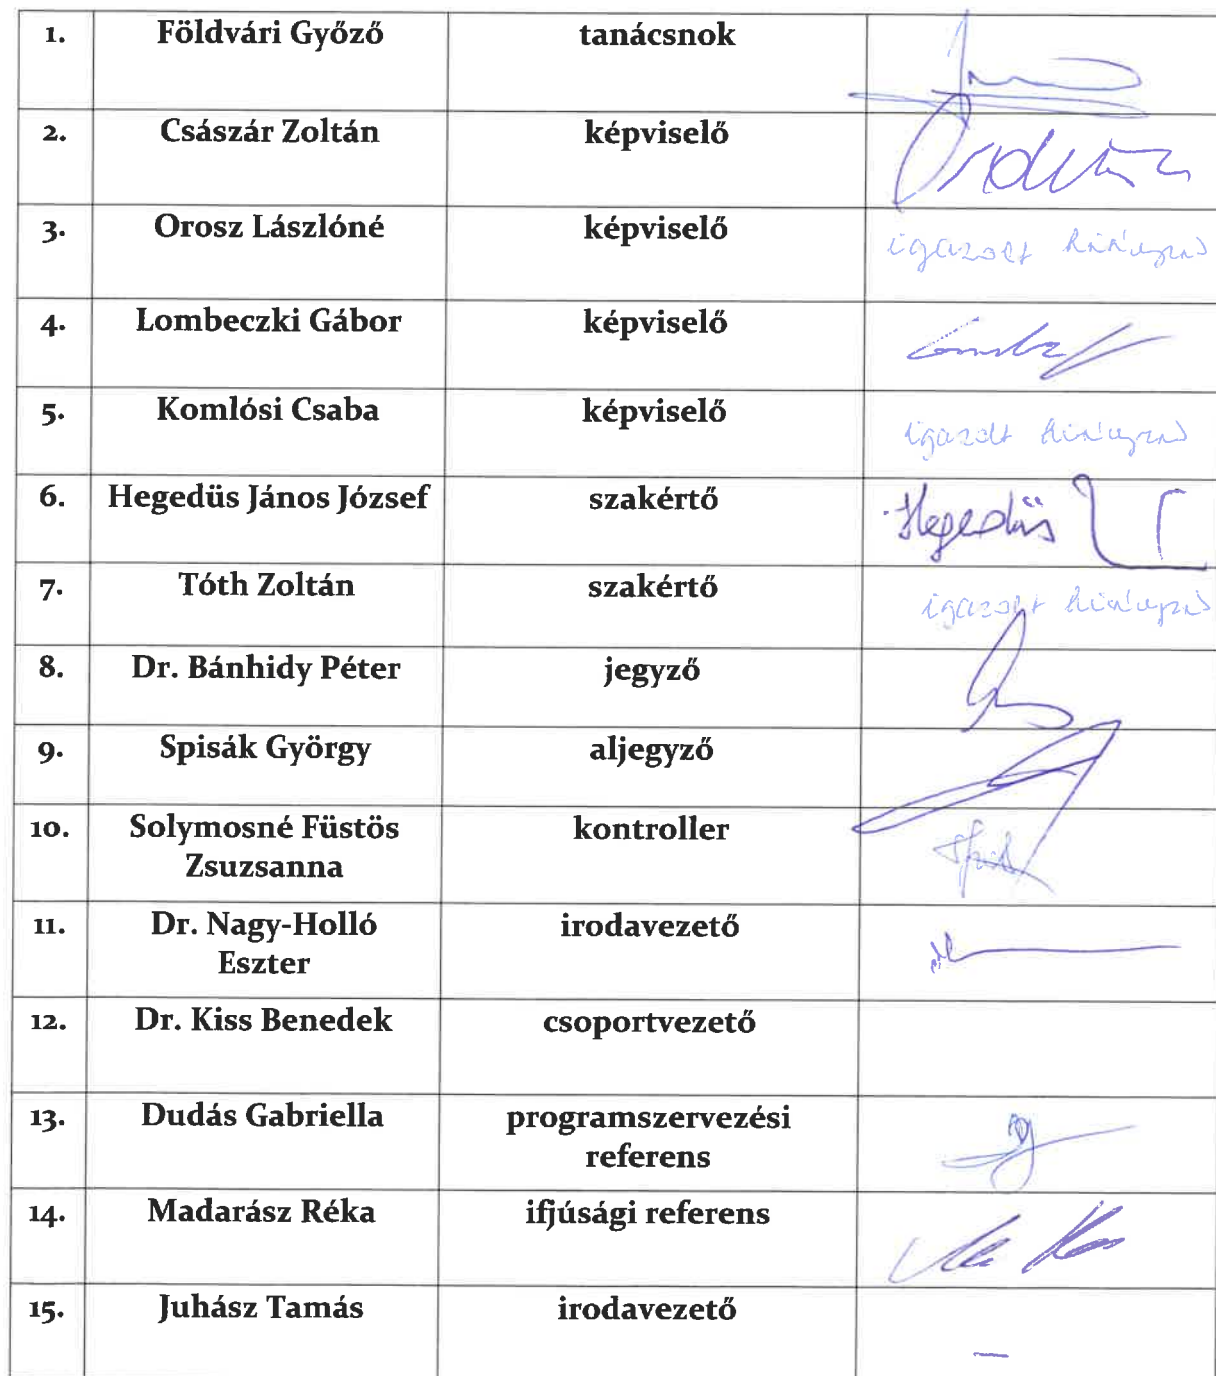 1. Földvári Győző tanácsnok
2. Császár Zoltán képviselő
3. Orosz Lászlóné képviselő igazolt hiányzás
4. Lombeczki Gábor képviselő
5. Komlósi Csaba képviselő igazolt hiányzás
6. Hegedüs János József szakértő Hegedüs
7. Tóth Zoltán szakértő igazolt hiányzás
8. Dr. Bánhidy Péter jegyző
9. Spisák György aljegyző
10. Solymosné Füstös kontroller
Zsuzsanna
11. Dr. Nagy-Holló irodavezető
Eszter
12. Dr. Kiss Benedek csoportvezető
13. Dudás Gabriella programszervezési
referens
14. Madarász Réka ifjúsági referens
15. Juhász Tamás irodavezető –